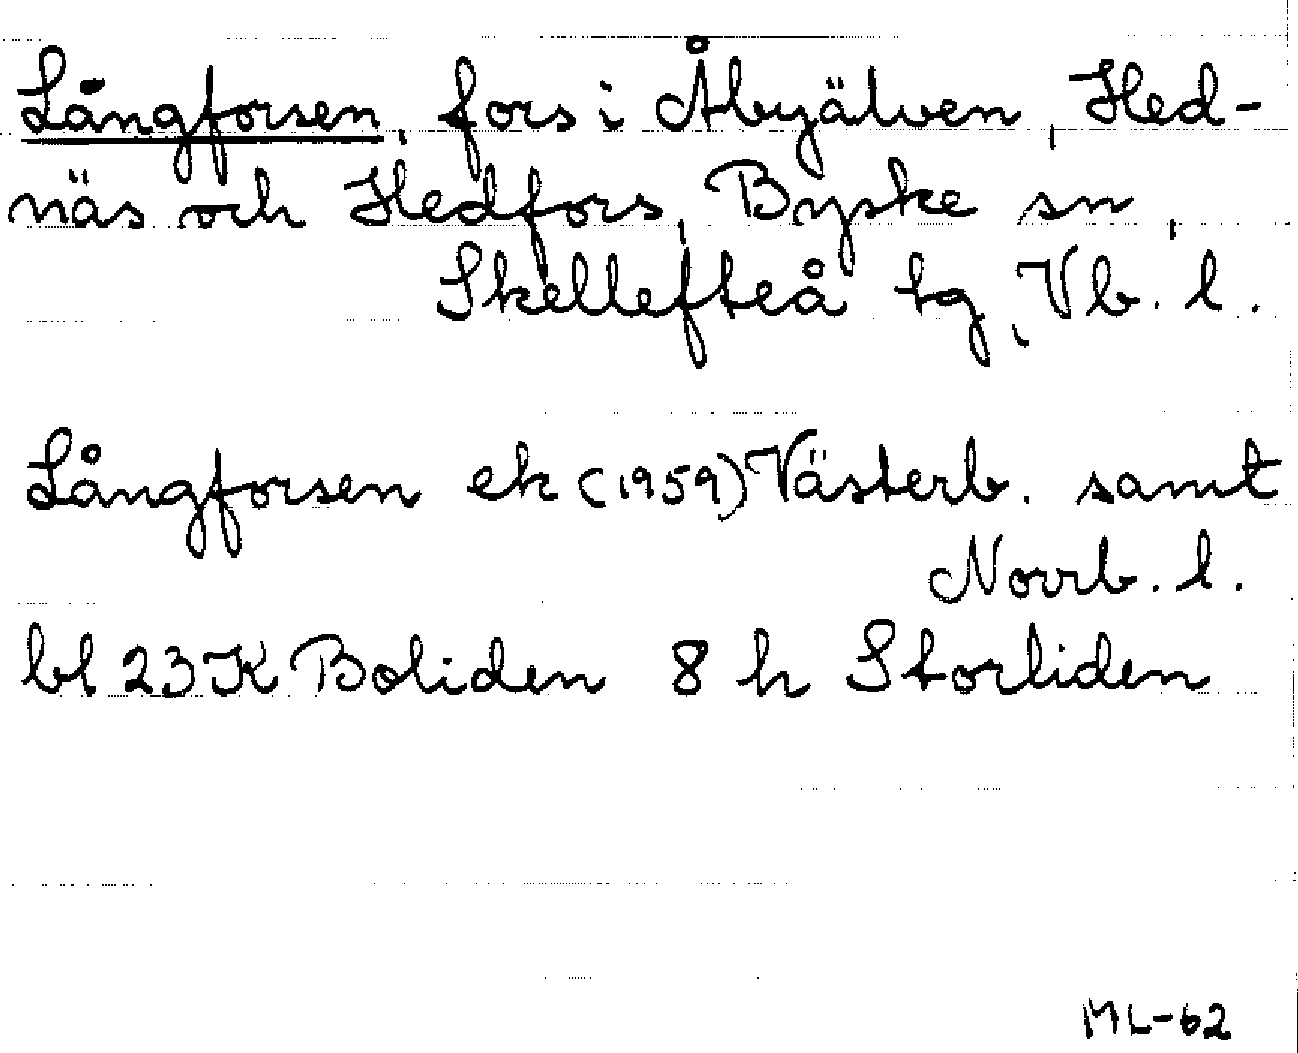 Långforsen, fors i Åbyälven, Hed-
näs och Hedfors, Byske sn,
Skellefteå tg, Vb. l.
Långforsen ek (1959) Västerb. samt
Norrb. l.
bl 23 K Boliden 8 h Storliden
ML-62